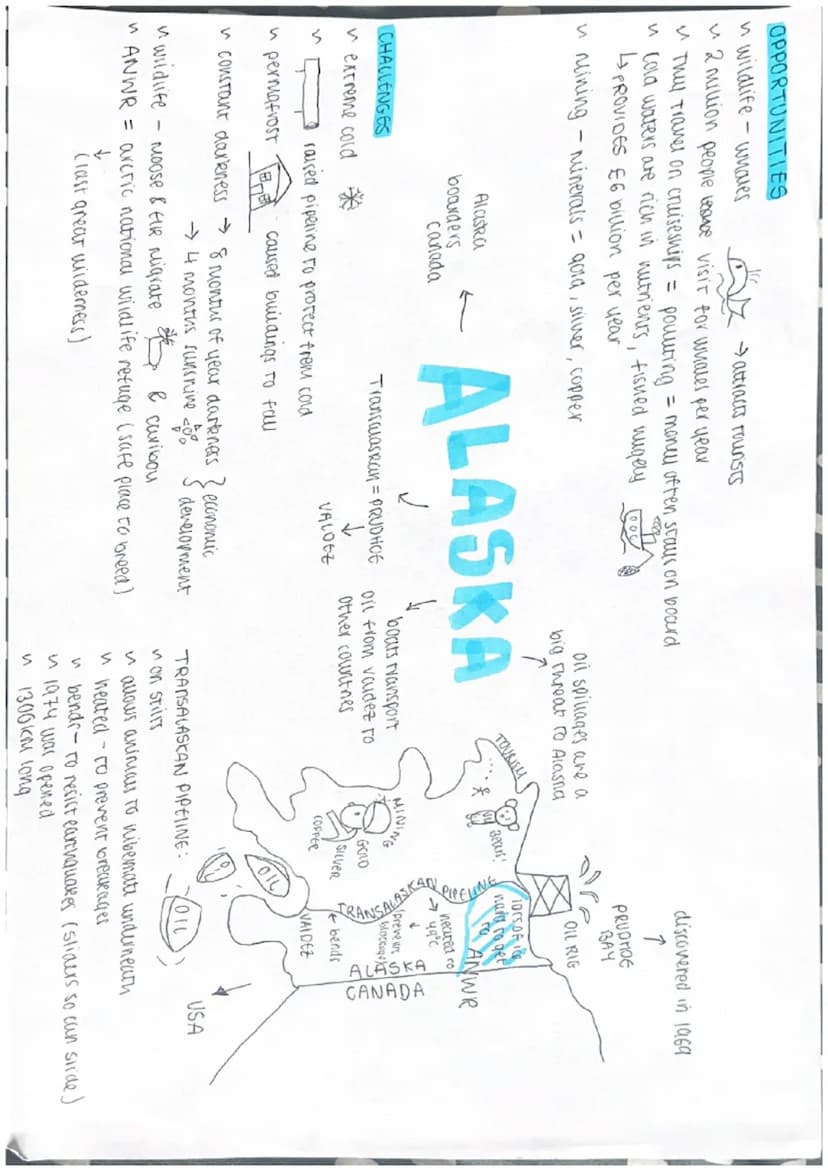 OPPORTUNITIES
~ wildlife - whales → attracts tourists
~ 2 million people visit for whales per year
~ They travel on cruiseships = polluting = money often stays on board
~ Cold waters are rich in nutrients, fished hugely
↳ PROVIDES £6 billion per year
~ Mining - Minerals = gold, silver, copper
Alaska
boarders
Canada
ALASKA
oil spillages are a
big threat to Alaska
discovered in 1969
PRUDHOE
BAY
OIL RIG
CHALLENGES
~ extreme cold
~ raised pipeline to protect from cold
~ permafrost caused buildings to fall
~ constant darkness → 8 months of year darkness
→ 4 months sunshine
} economic
development
~ wildlife - moose & elk migrate & caribou
~ ANWR = arctic national wildlife refuge (safe place to breed)
(last great wilderness)
Transalaskan = PRUDHOE
↓
VALDEZ
boats transport
oil from valdez to
other countries
TRANSALASKAN PIPELINE:
~ on stilts
~ allows animals to hibernate underneath
~ heated - to prevent breakages
~ bends - to resist earthquakes (sliders so can slide)
~ 1974 was opened
~ 1300km long
TOURISM
bears!
MINING
GOLD
SILVER
COPPER
TRANSALASKAN PIPELINE
lots of ice
hard to get
to
ANWR
→ heated to
49°C
↓
prevent
blockages
← bends
VALDEZ
ALASKA
CANADA
OIL
OIL
OIL
USA